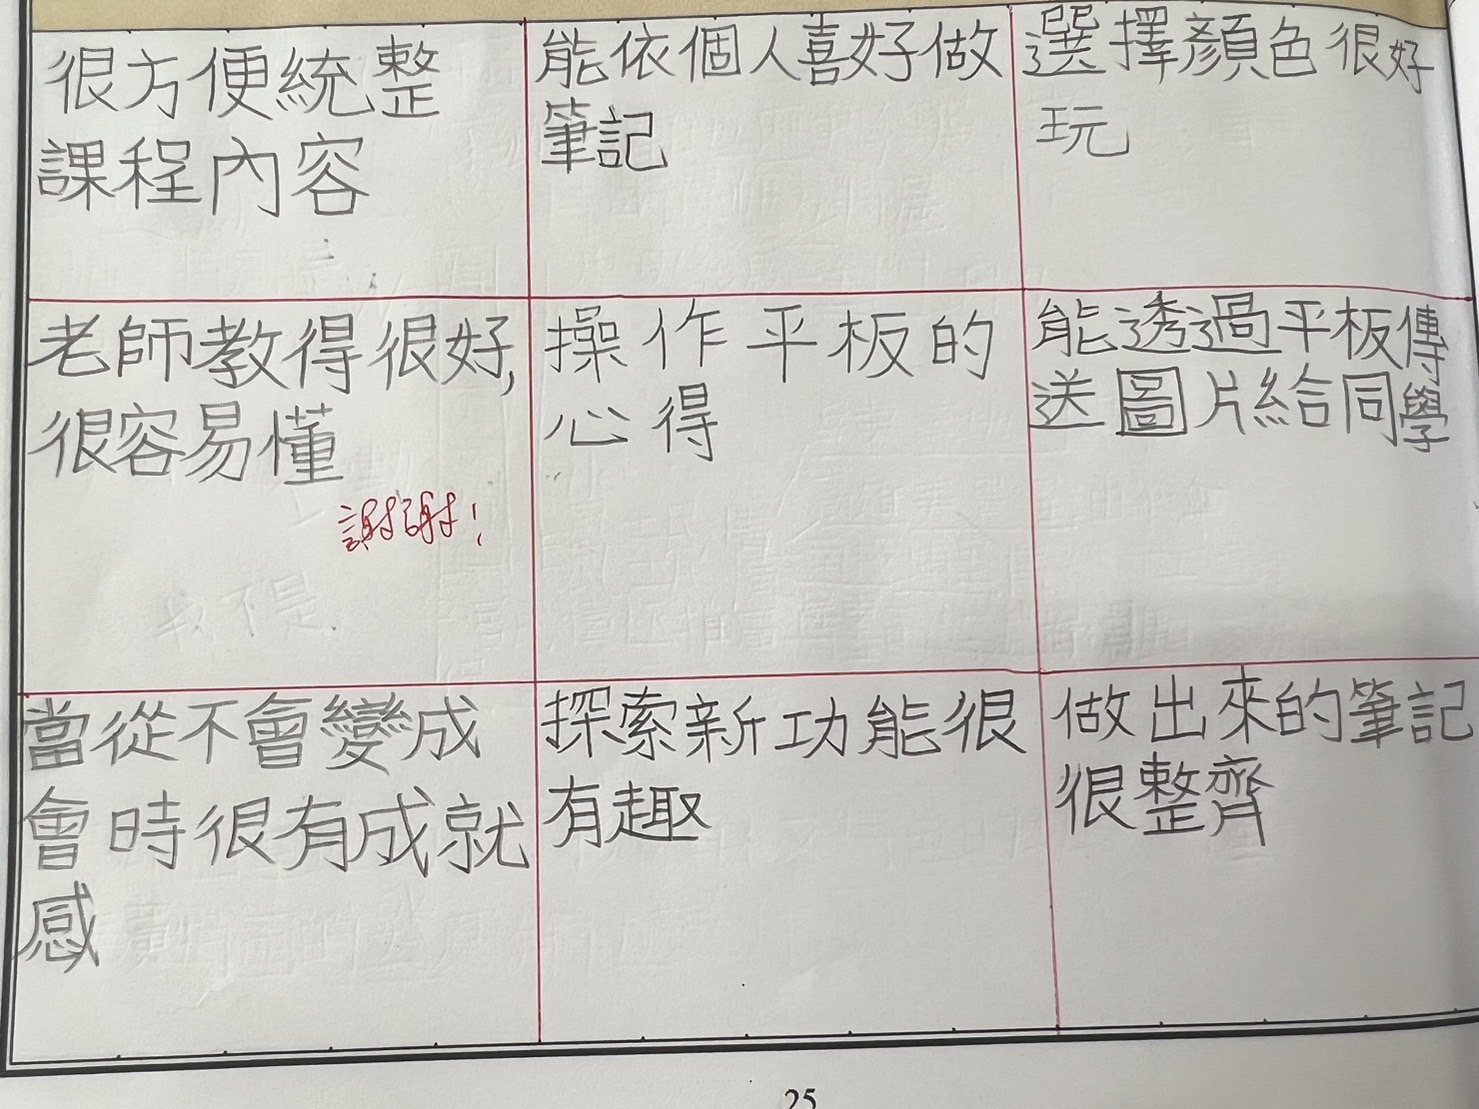 很方便統整
課程內容
能依個人喜好做
筆記
選擇顏色很好
玩
老師教得很好,
很容易懂
謝謝!
我不是
操作平板的
心得
能透過平板傳
送圖片給同學
當從不會變成
會時很有成就
感
探索新功能很
有趣
做出來的筆記
很整齊
25